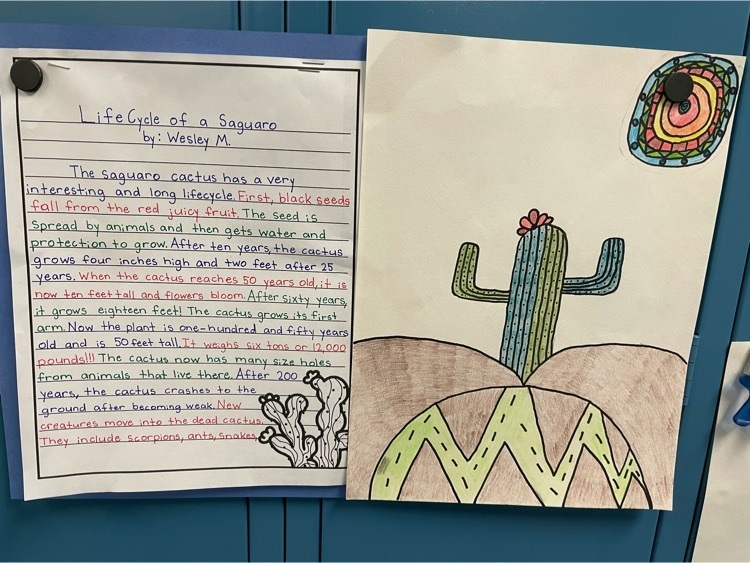 Life Cycle of a Saguaro
by: Wesley M.
The saguaro cactus has a very
interesting and long lifecycle. First, black seeds
fall from the red juicy fruit. The seed is
spread by animals and then gets water and
protection to grow. After ten years, the cactus
grows four inches high and two feet after 25
years. When the cactus reaches 50 years old, it is
now ten feet tall and flowers bloom. After sixty years,
it grows eighteen feet! The cactus grows its first
arm. Now the plant is one-hundred and fifty years
old and is 50 feet tall. It weighs six tons or 12,000
pounds!!! The cactus now has many size holes
from animals that live there. After 200
years, the cactus crashes to the
ground after becoming weak. New
creatures move into the dead cactus.
They include scorpions, ants, snakes.